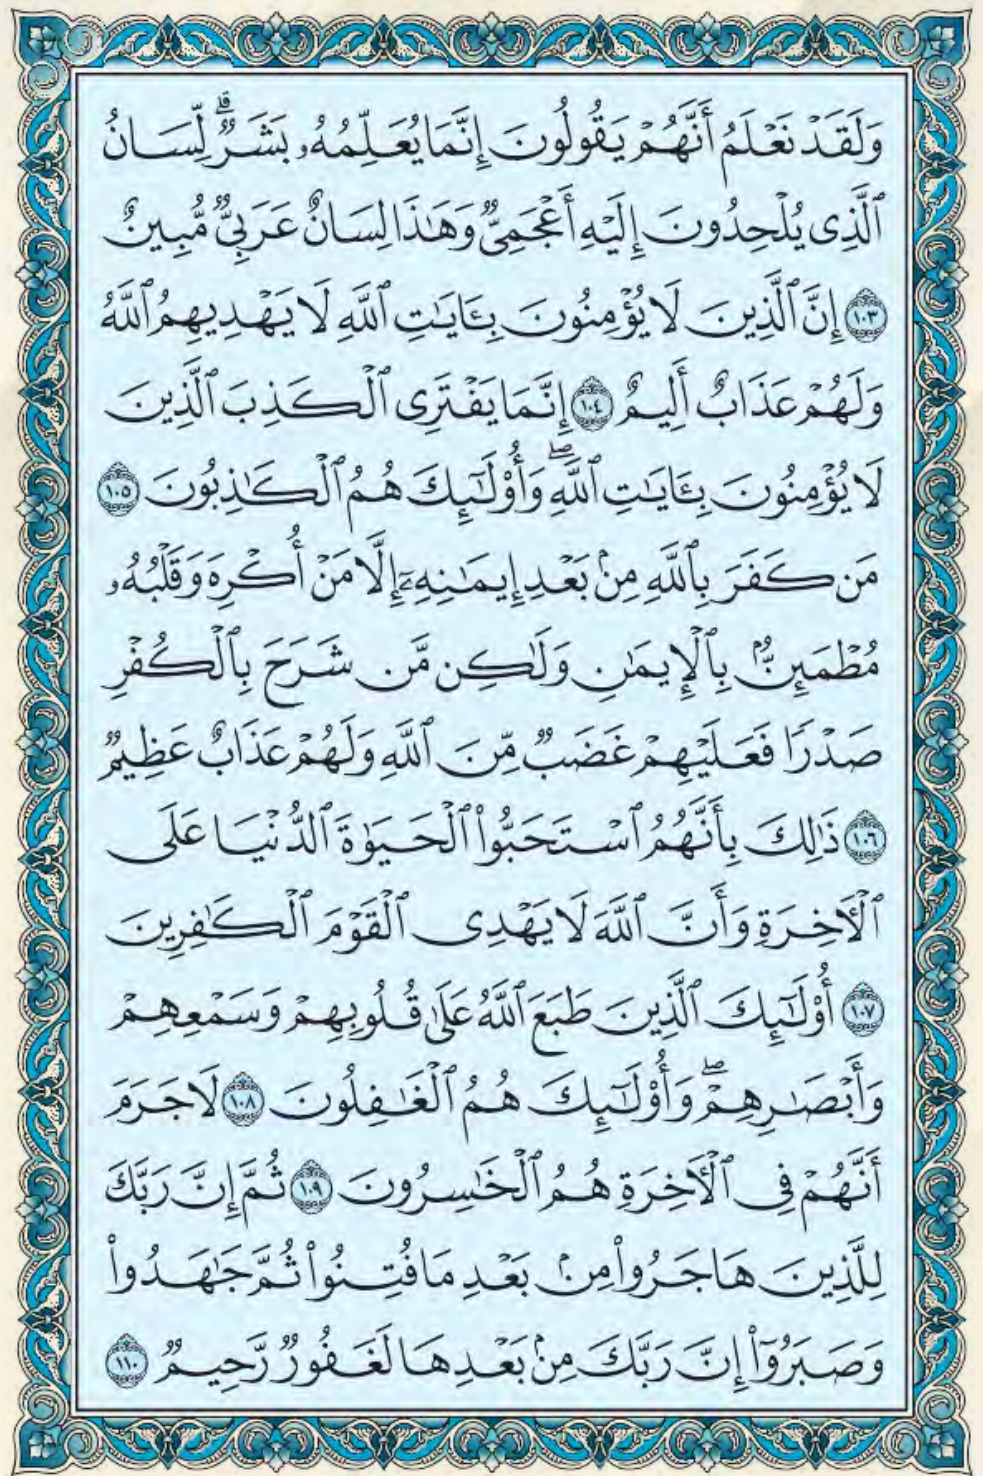 وَلَقَدْ نَعْلَمُ أَنَّهُمْ يَقُولُونَ إِنَّمَا يُعَلِّمُهُۥ بَشَرٌۗ لِّسَانُ
ٱلَّذِى يُلْحِدُونَ إِلَيْهِ أَعْجَمِىٌّ وَهَـٰذَا لِسَانٌ عَرَبِىٌّ مُّبِينٌ
١٠٣ إِنَّ ٱلَّذِينَ لَا يُؤْمِنُونَ بِـَٔايَـٰتِ ٱللَّهِ لَا يَهْدِيهِمُ ٱللَّهُ
وَلَهُمْ عَذَابٌ أَلِيمٌ ١٠٤ إِنَّمَا يَفْتَرِى ٱلْكَذِبَ ٱلَّذِينَ
لَا يُؤْمِنُونَ بِـَٔايَـٰتِ ٱللَّهِۖ وَأُو۟لَـٰٓئِكَ هُمُ ٱلْكَـٰذِبُونَ ١٠٥
مَن كَفَرَ بِٱللَّهِ مِنۢ بَعْدِ إِيمَـٰنِهِۦٓ إِلَّا مَنْ أُكْرِهَ وَقَلْبُهُۥ
مُطْمَئِنٌّۢ بِٱلْإِيمَـٰنِ وَلَـٰكِن مَّن شَرَحَ بِٱلْكُفْرِ
صَدْرًا فَعَلَيْهِمْ غَضَبٌ مِّنَ ٱللَّهِ وَلَهُمْ عَذَابٌ عَظِيمٌ
١٠٦ ذَٰلِكَ بِأَنَّهُمُ ٱسْتَحَبُّوا۟ ٱلْحَيَوٰةَ ٱلدُّنْيَا عَلَى
ٱلْـَٔاخِرَةِ وَأَنَّ ٱللَّهَ لَا يَهْدِى ٱلْقَوْمَ ٱلْكَـٰفِرِينَ
١٠٧ أُو۟لَـٰٓئِكَ ٱلَّذِينَ طَبَعَ ٱللَّهُ عَلَىٰ قُلُوبِهِمْ وَسَمْعِهِمْ
وَأَبْصَـٰرِهِمْۖ وَأُو۟لَـٰٓئِكَ هُمُ ٱلْغَـٰفِلُونَ ١٠٨ لَا جَرَمَ
أَنَّهُمْ فِى ٱلْـَٔاخِرَةِ هُمُ ٱلْخَـٰسِرُونَ ١٠٩ ثُمَّ إِنَّ رَبَّكَ
لِلَّذِينَ هَاجَرُوا۟ مِنۢ بَعْدِ مَا فُتِنُوا۟ ثُمَّ جَـٰهَدُوا۟
وَصَبَرُوٓا۟ إِنَّ رَبَّكَ مِنۢ بَعْدِهَا لَغَفُورٌ رَّحِيمٌ ١١٠